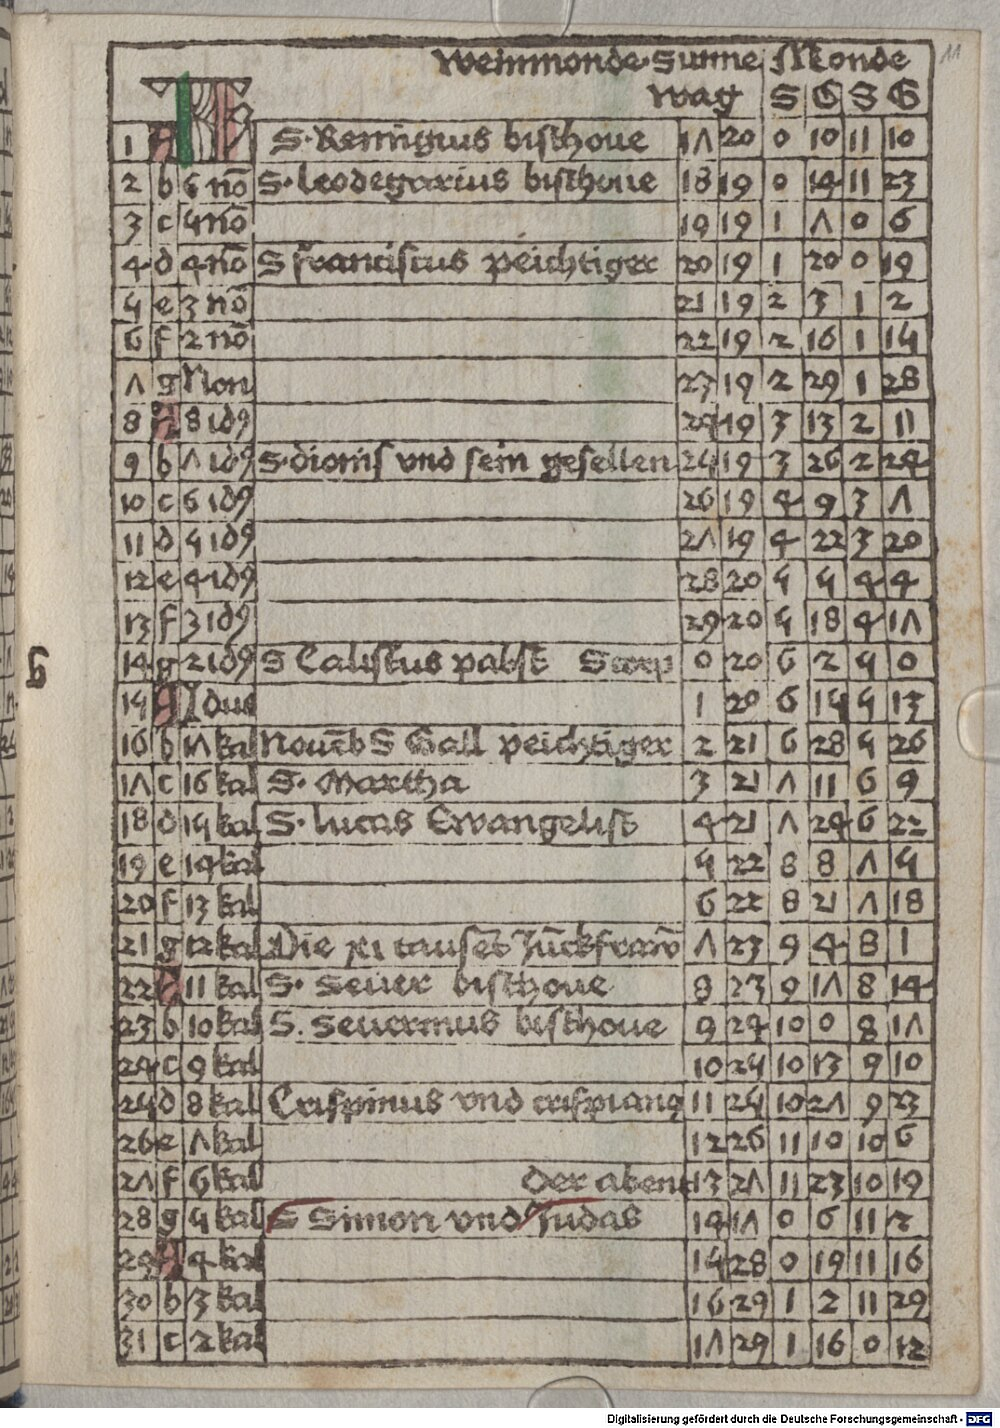 11
Weinmonde Sunne Monde
wag S G S G
1 a S. Remigius bischoue 17 20 0 10 11 10
2 b 6 nō S. leodegarius bischoue 18 19 0 24 11 23
3 c 5 nō 19 19 1 7 0 6
4 d 4 nō S franciscus peichtiger 20 19 1 20 0 19
5 e 3 nō 21 19 2 3 1 2
6 f 2 nō 22 19 2 16 1 15
7 g Non 23 19 2 29 1 28
8 a 8 idꝰ 24 19 3 13 2 11
9 b 7 idꝰ S. dionis vnd sein gesellen 25 19 3 26 2 24
10 c 6 idꝰ 26 19 4 9 3 7
11 d 5 idꝰ 27 19 4 22 3 20
12 e 4 idꝰ 28 20 5 5 4 4
13 f 3 idꝰ 29 20 5 18 4 17
14 g 2 idꝰ S Calistus pabst Scorp 0 20 6 2 5 0
15 a Idus 1 20 6 15 5 13
16 b 17 kal Nouēb S Gall peichtiger 2 21 6 28 5 26
17 c 16 kal S. Martha 3 21 7 11 6 9
18 d 15 kal S. lucas Ewangelist 4 21 7 24 6 22
19 e 14 kal 5 22 8 8 7 5
20 f 13 kal 6 22 8 21 7 18
21 g 12 kal Die xi tausēt Jūckfraw 7 23 9 4 8 1
22 a 11 kal S. Seuer bischoue 8 23 9 17 8 14
23 b 10 kal S. Seuerinus bischoue 9 24 10 0 8 17
24 c 9 kal 10 25 10 13 9 10
25 d 8 kal Crispinus vnd crispianꝰ 11 25 10 27 9 23
26 e 7 kal 12 26 11 10 10 6
27 f 6 kal der abent 13 27 11 23 10 19
28 g 5 kal S Simon vnd Judas 14 17 0 6 11 2
29 a 4 kal 15 28 0 19 11 16
30 b 3 kal 16 29 1 2 11 29
31 c 2 kal 17 29 1 16 0 12
Digitalisierung gefördert durch die Deutsche Forschungsgemeinschaft - DFG